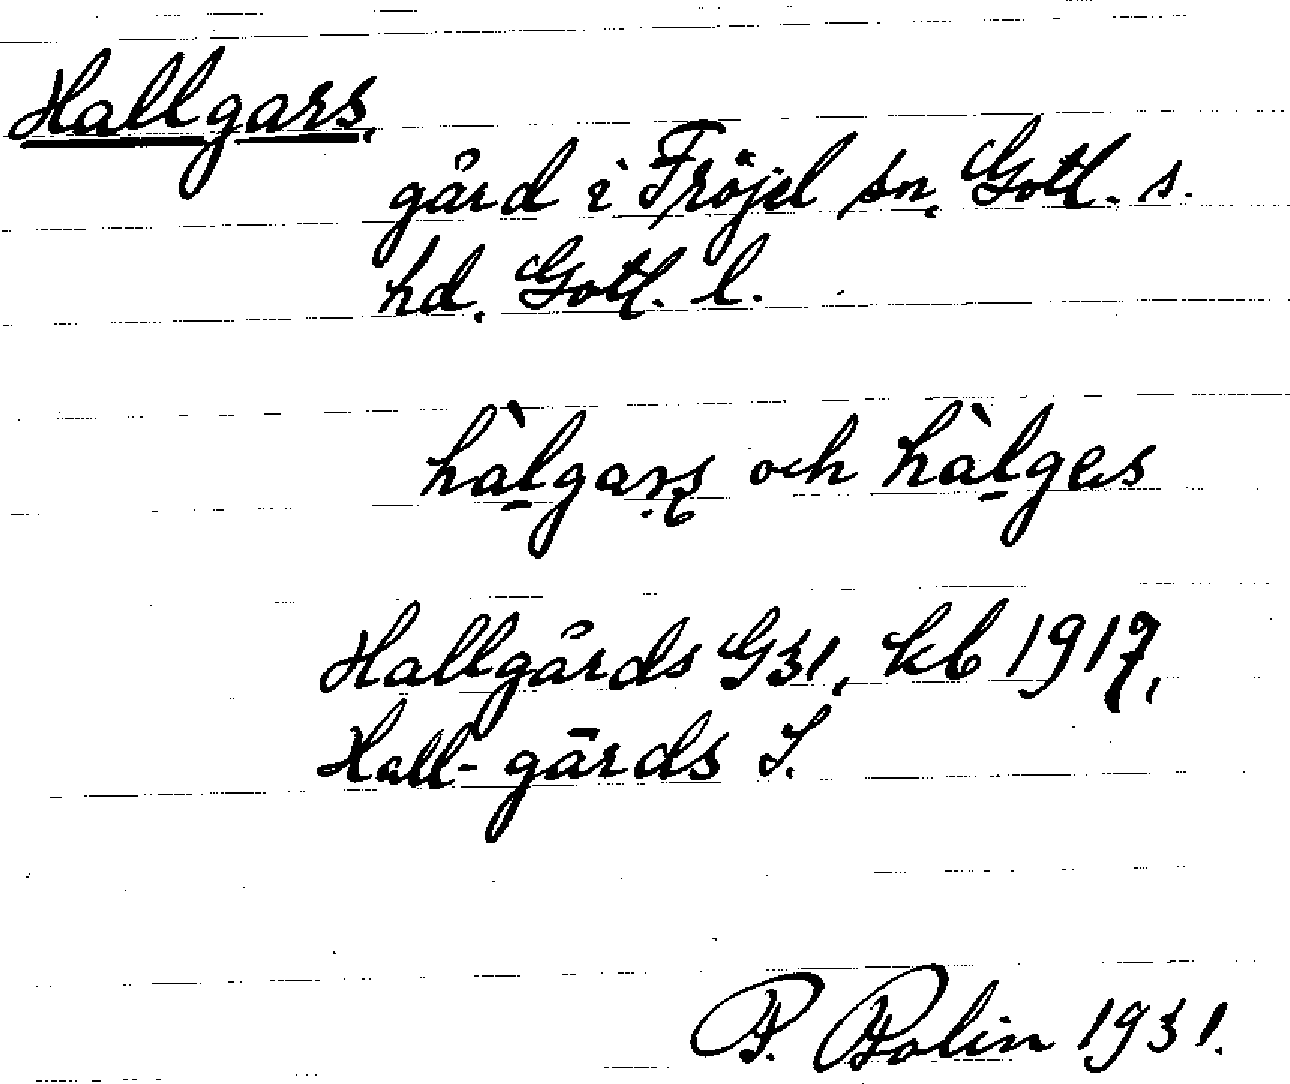 Hallgars.
gård i Fröjel sn. Gotl. s.
hd. Gotl. l.
hàl̲gaṛʂ och hàl̲ges
Hallgårds G31, kb 1917,
Hall-gårds J.
P. Bolin 1931.